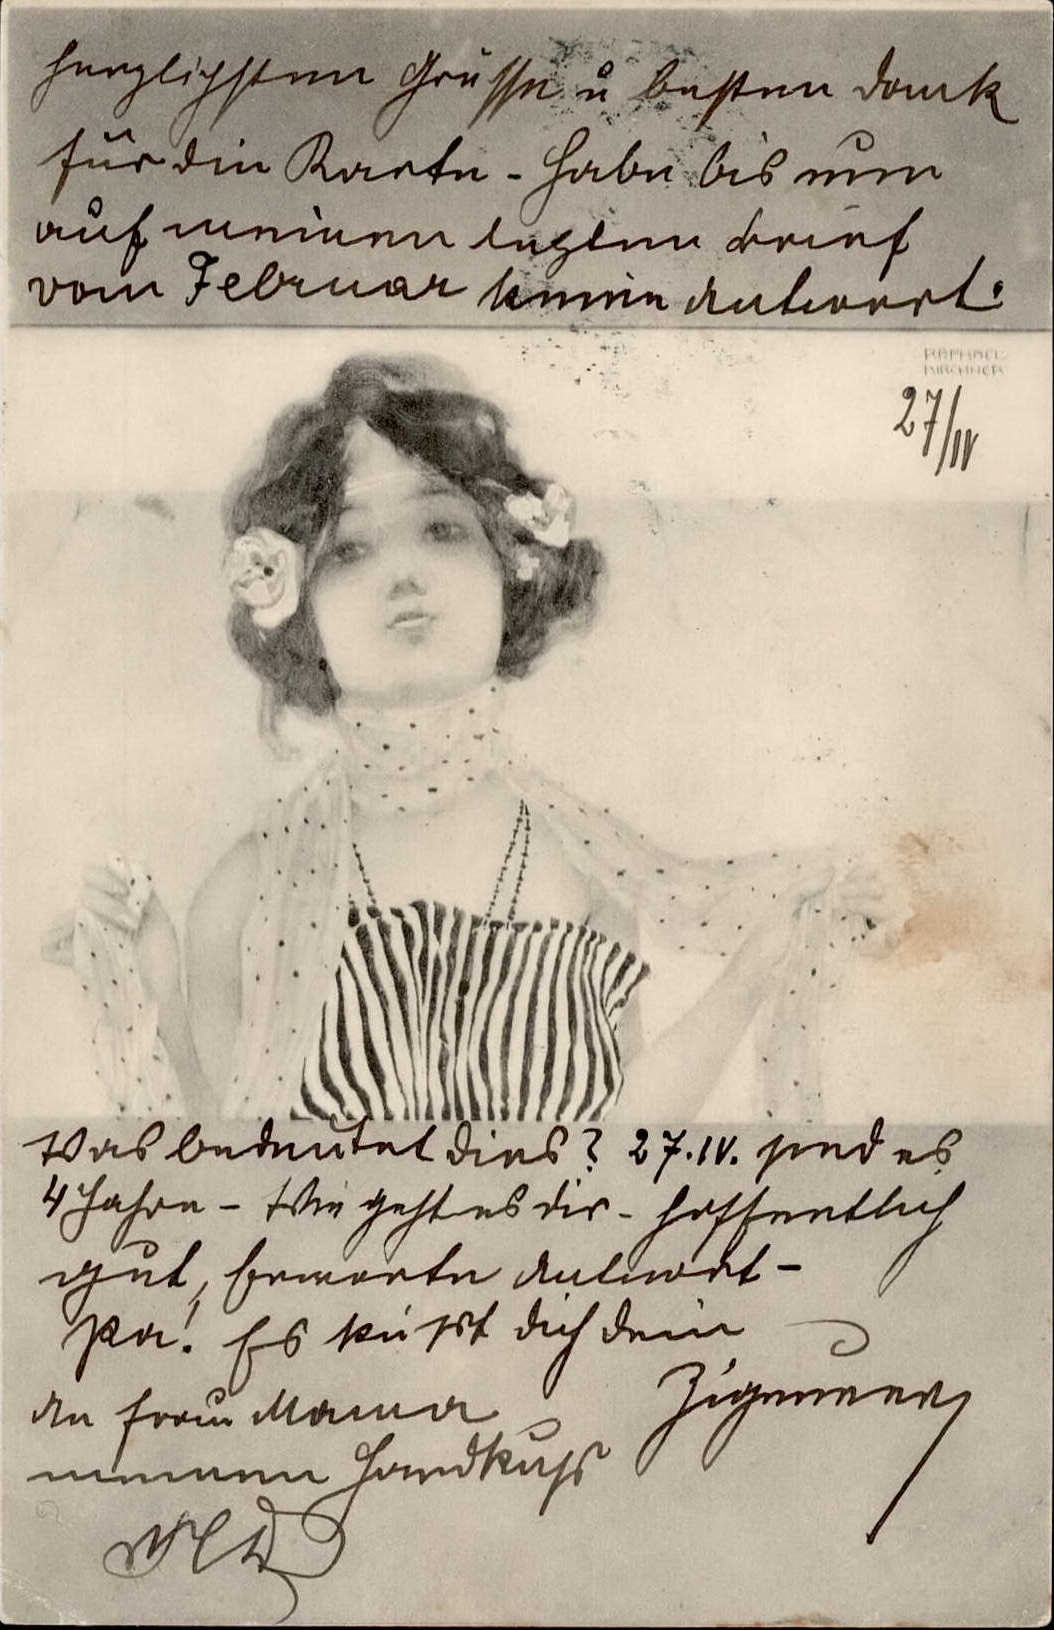 herzlichsten Grüsse u besten dank
für die Karte - habe bis nun
auf meinen letzten brief
vom Februar keine antwort.
RAPHAEL
KIRCHNER
27/IV
Was bedeutet dies? 27.IV. sind es
4 Jahre - Wie geht es dir - hoffentlich
gut, Erwarte antwort -
Pa! Es küsst dich dein
Zigeuner
an frau Mama
meinen Handkuss